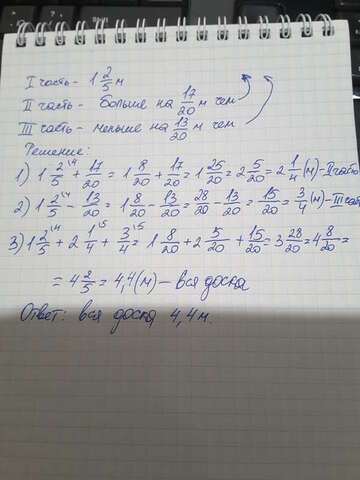 I часть - 1 2/5 м
II часть - больше на 17/20 м чем
III часть - меньше на 13/20 м чем
Решение:
1) 1 2/5 \4 + 17/20 = 1 8/20 + 17/20 = 1 25/20 = 2 5/20 = 2 1/4 (м) - II часть
2) 1 2/5 \4 - 13/20 = 1 8/20 - 13/20 = 28/20 - 13/20 = 15/20 = 3/4 (м) - III часть
3) 1 2/5 \4 + 2 1/4 \5 + 3/4 \5 = 1 8/20 + 2 5/20 + 15/20 = 3 28/20 = 4 8/20 =
= 4 2/5 = 4,4 (м) - вся доска
Ответ: вся доска 4,4 м.